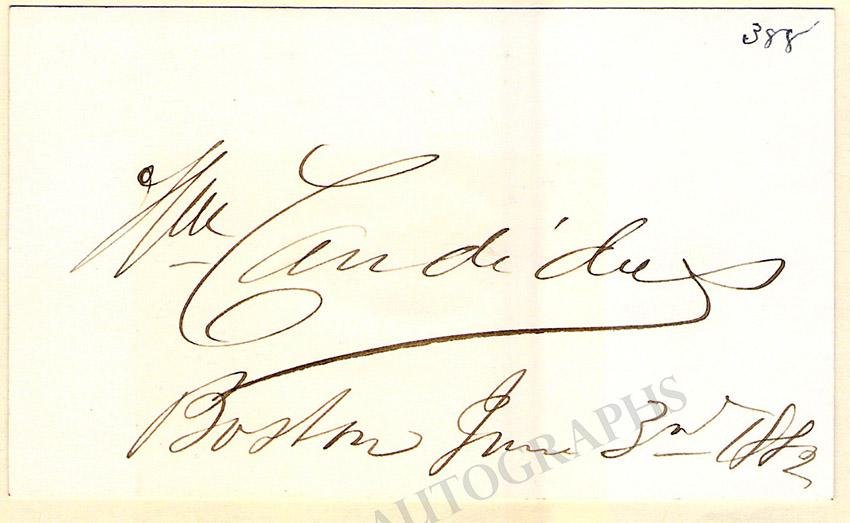 388
Wm Candidus
Boston June 3rd 1882
AUTOGRAPHS